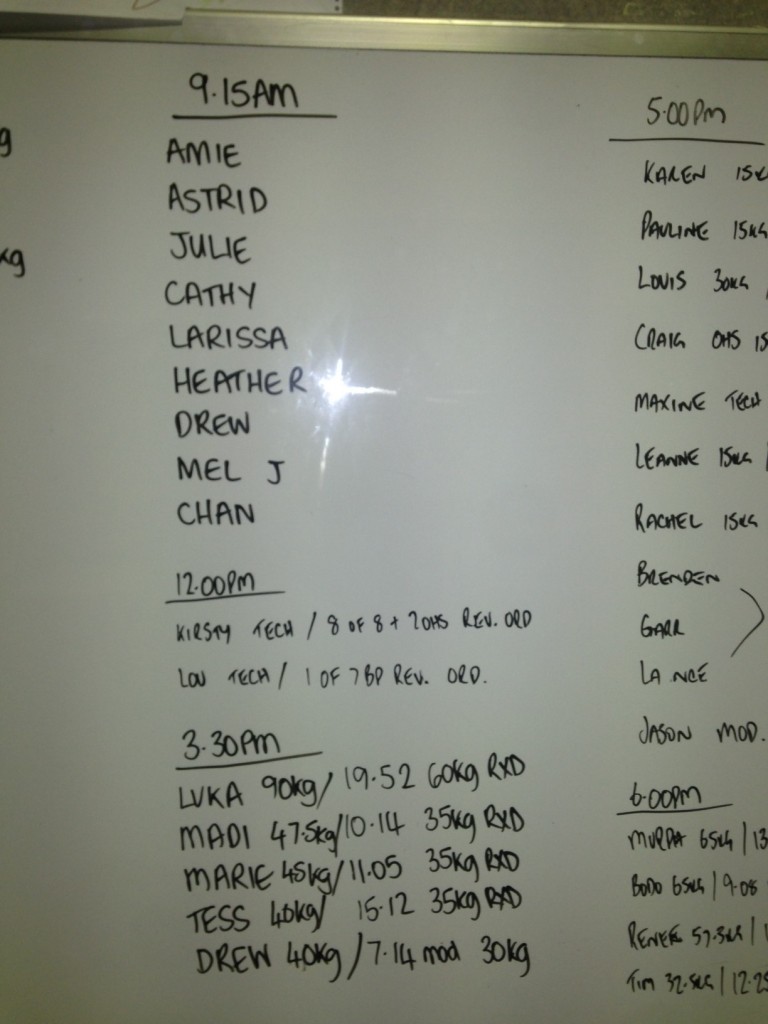 g
kg
9.15AM
AMIE
ASTRID
JULIE
CATHY
LARISSA
HEATHER
DREW
MEL J
CHAN
12.00PM
KIRSTY TECH / 8 OF 8 + 7OHS REV. ORD
LOU TECH / 1 OF 7 BP REV. ORD.
3.30PM
LUKA 90kg/ 19.52 60kg RXD
MADI 47.5kg/10.14 35kg RXD
MARIE 45kg/11.05 35kg RXD
TESS 40kg/ 15.12 35kg RXD
DREW 40kg/7.14 mod 30kg
5.00PM
KAREN 15K
PAULINE 15KG
LOUIS 30KG /
CRAIG OHS 15
MAXINE TECH
LEANNE 15KG /
RACHEL 15KG
BRENDEN
GARR
LANCE
JASON MOD.
6.00PM
MURPH 65KG | 13
BODO 65KG | 9.08
RENEE 57.5KG | 1
TIM 32.5KG | 12.25